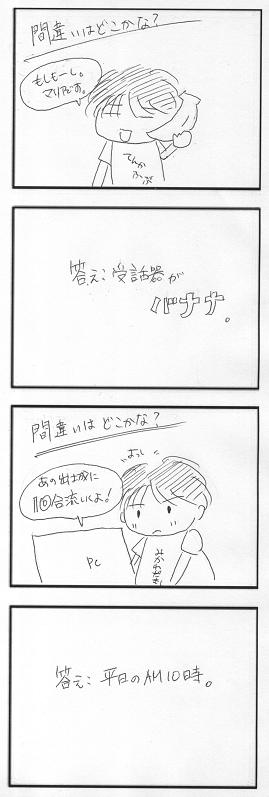 間違いはどこかな?
もしもーし。
マリアです。
てんかふぶ
答え:受話器が
バナナ。
間違いはどこかな?
よっし
1回合流いくよ!
PC
答え:平日のAM10時。